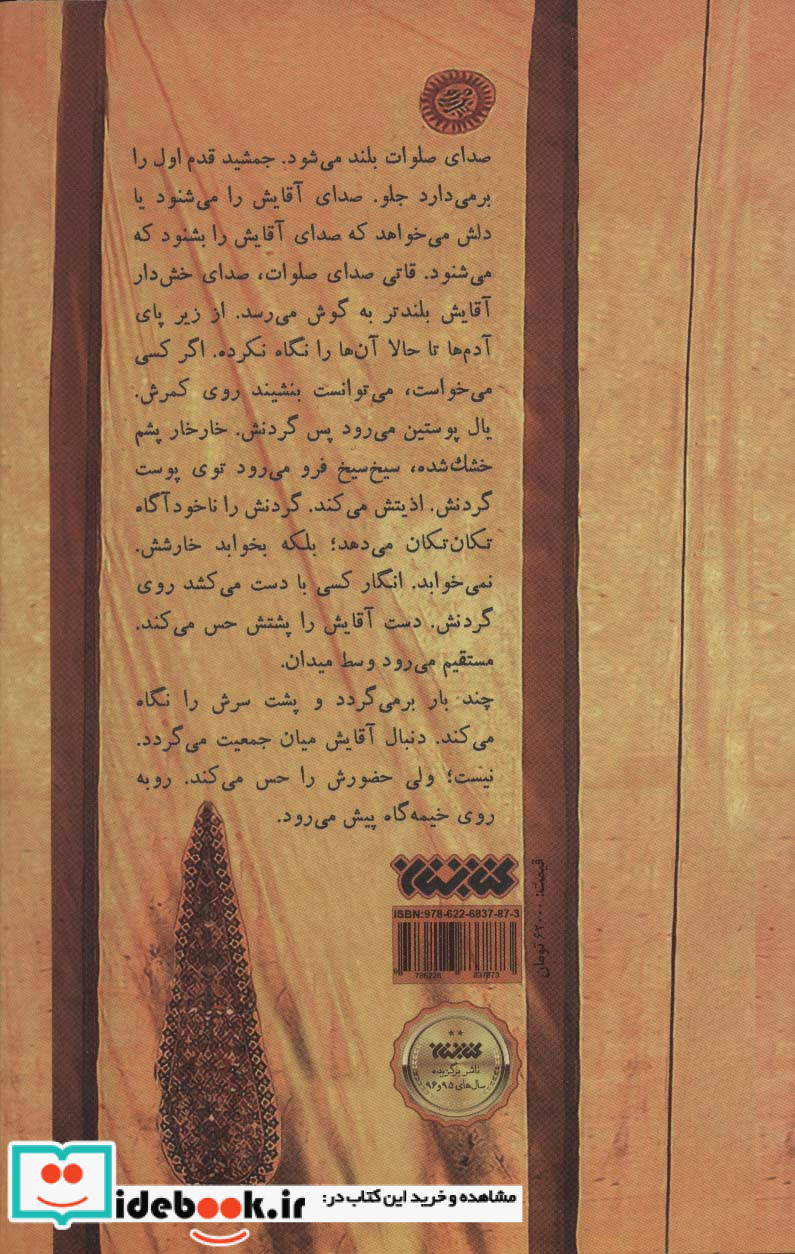 صدای صلوات بلند می‌شود. جمشید قدم اول را
برمی‌دارد جلو. صدای آقایش را می‌شنود یا
دلش می‌خواهد که صدای آقایش را بشنود که
می‌شنود. قاتی صدای صلوات، صدای خش‌دار
آقایش بلندتر به گوش می‌رسد. از زیر پای
آدم‌ها تا حالا آن‌ها را نگاه نکرده. اگر کسی
می‌خواست، می‌توانست بنشیند روی کمرش.
یال پوستین می‌رود پس گردنش. خارخار پشم
خشك‌شده، سیخ‌سیخ فرو می‌رود توی پوست
گردنش. اذیتش می‌کند. گردنش را ناخودآگاه
تکان‌تکان می‌دهد؛ بلکه بخوابد خارشش.
نمی‌خوابد. انگار کسی با دست می‌کشد روی
گردنش. دست آقایش را پشتش حس می‌کند.
مستقیم می‌رود وسط میدان.
چند بار برمی‌گردد و پشت سرش را نگاه
می‌کند. دنبال آقایش میان جمعیت می‌گردد.
نیست؛ ولی حضورش را حس می‌کند. روبه
روی خیمه‌گاه پیش می‌رود.
کتابستان
قیمت: ۶۲۰۰۰ تومان
ISBN:978-622-6837-87-3
9 786226 837873
کتابستان
ناشر برگزیده
سال‌های ۹۵ و ۹۶
مشاهده و خرید این کتاب در:
idebook.ir